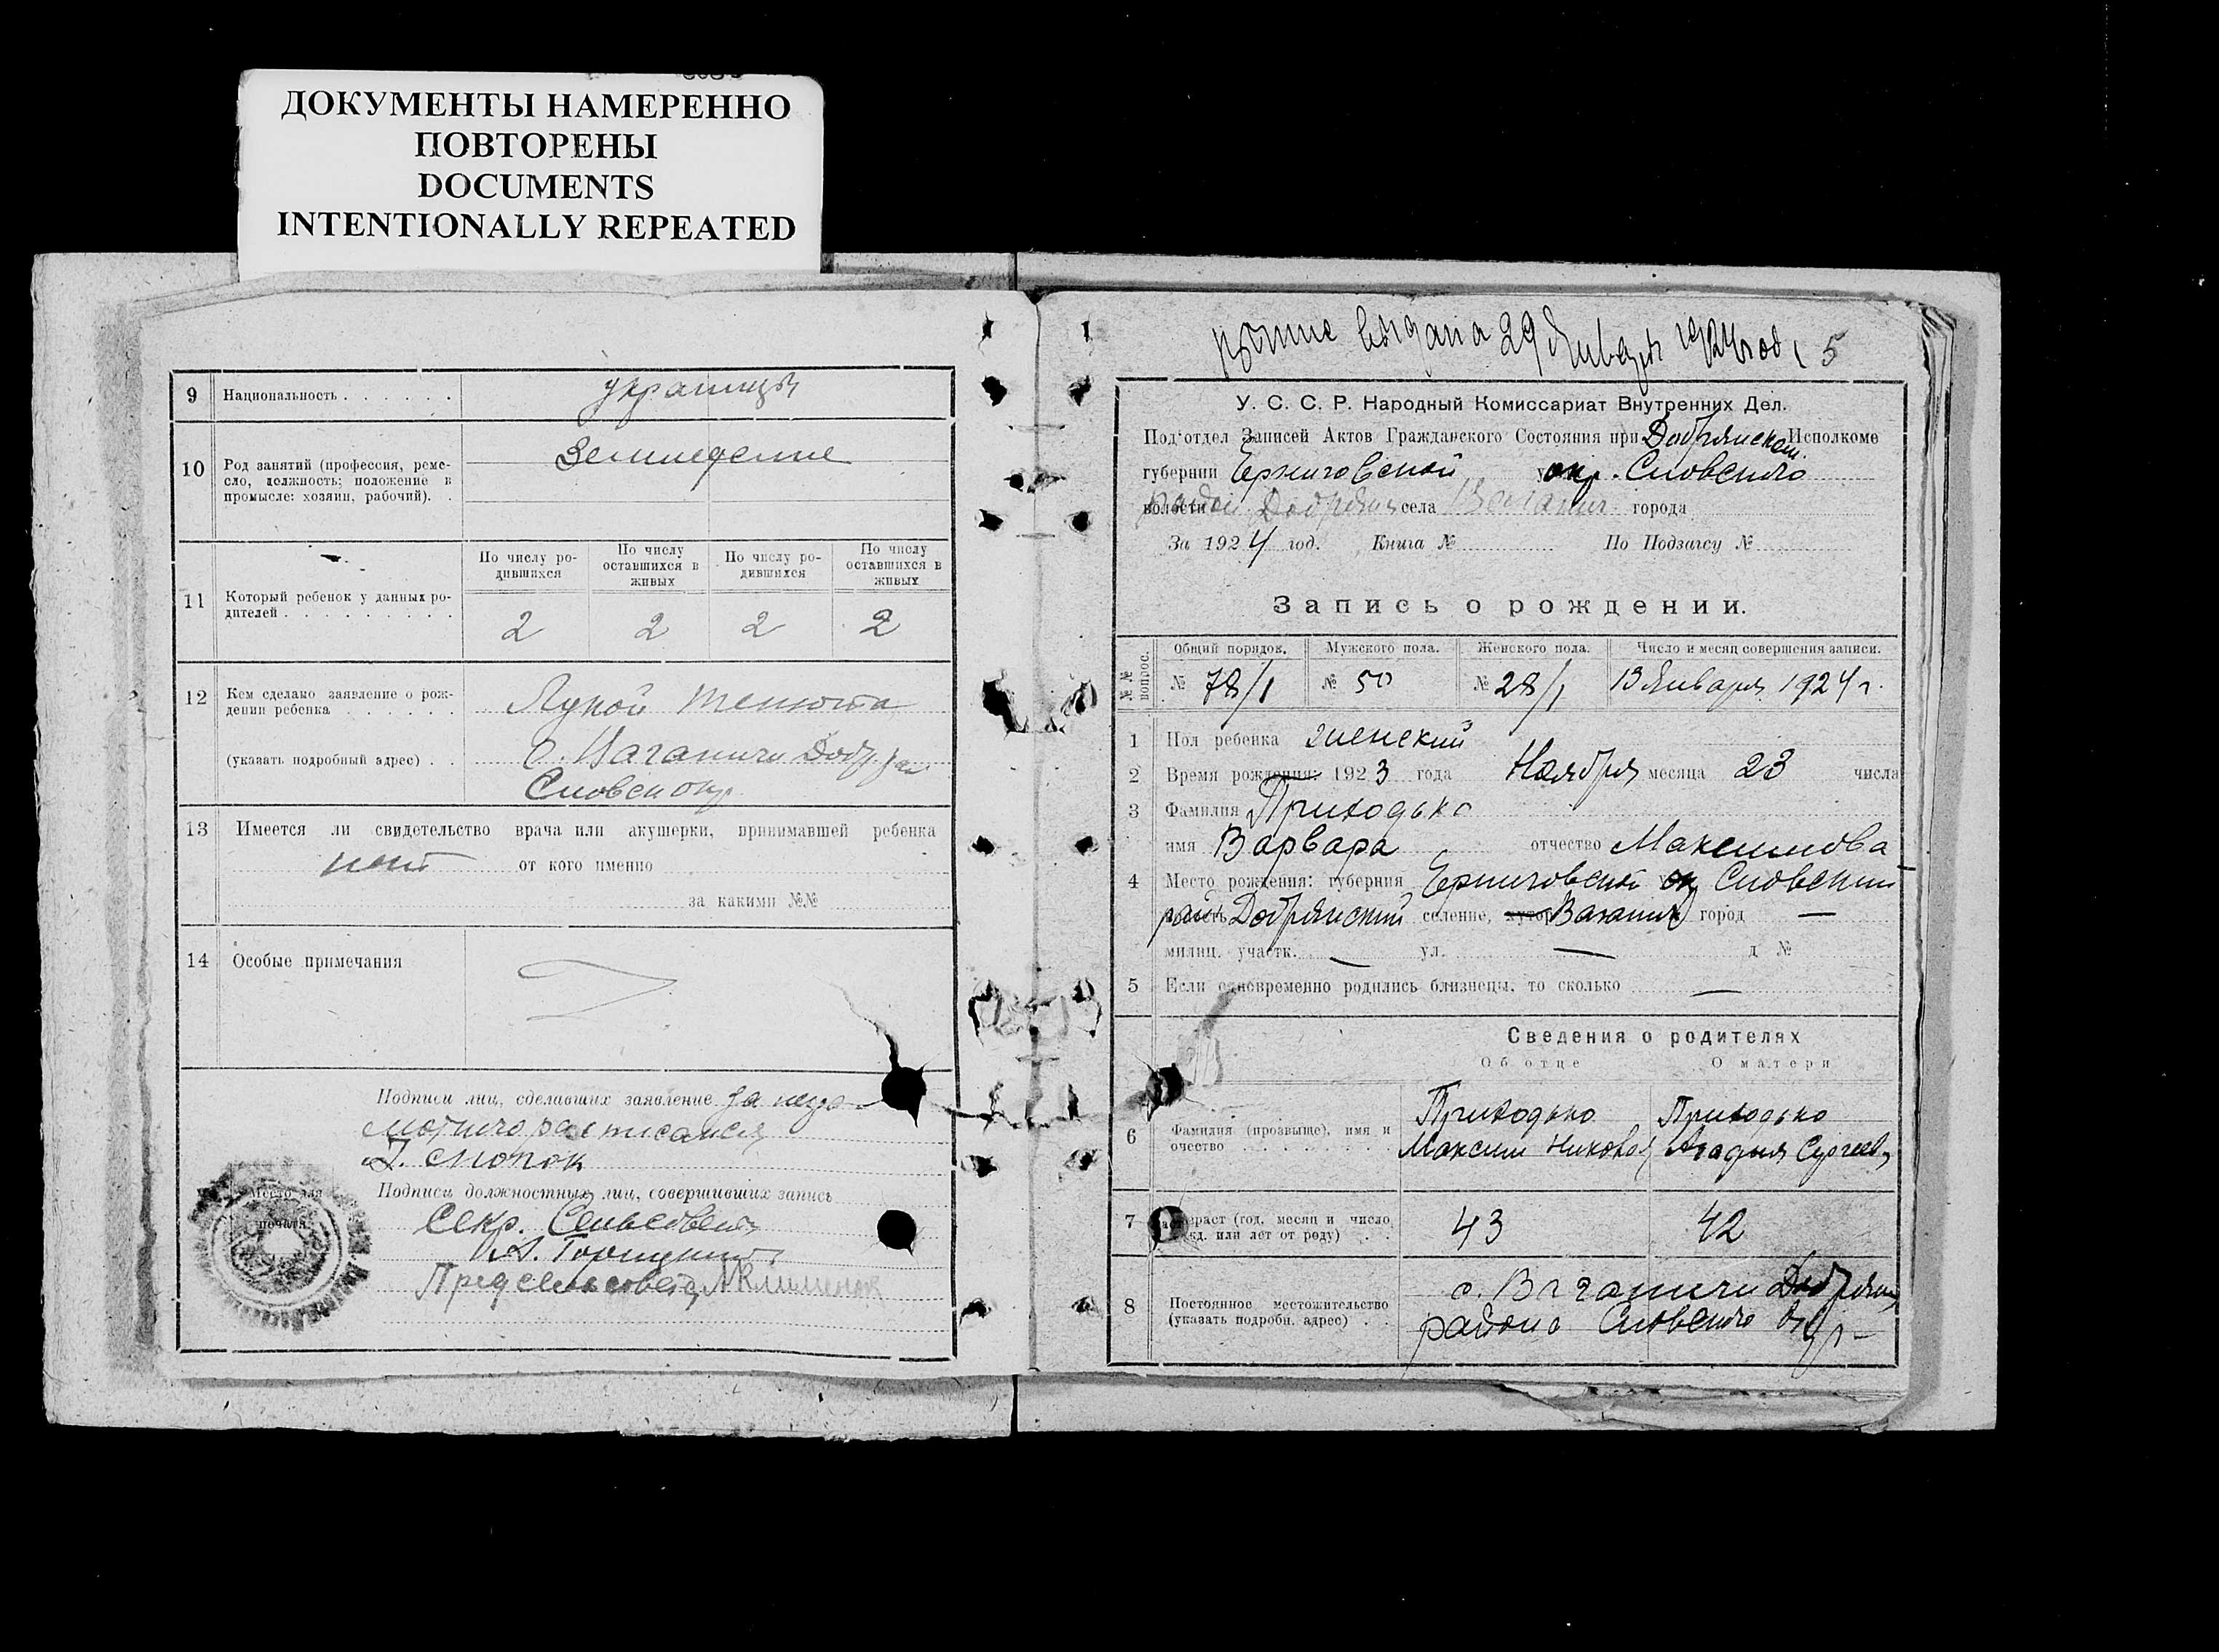 ДОКУМЕНТЫ НАМЕРЕННО
ПОВТОРЕНЫ
DOCUMENTS
INTENTIONALLY REPEATED
9 Национальность . . . . . . украинцы
10 Род занятий (профессия, реме-
сло, должность; положение в
промысле: хозяин, рабочий). . Земледелие
По числу ро-
дившихся
По числу
оставшихся в
живых
По числу ро-
дившихся
По числу
оставшихся в
живых
11 Который ребенок у данных ро-
дителей . . . . . . . . . 2 2 2 2
12 Кем сделано заявление о рож-
дении ребенка . . . . . . Лукой
(указать подробный адрес) . . с. Ваганичи Добр рай
Сновск окр.
13 Имеется ли свидетельство врача или акушерки, принимавшей ребенка
нет от кого именно
за какими №№
14 Особые примечания
Подписи лиц, сделавших заявление за негра-
мотного расписался
Подписи должностных лиц, совершивших запись
Секр. Сельсовета
Пред сельсовета Клименок
Место для
печати
выдана 29 Января 1924 год 5
У. С. С. Р. Народный Комиссариат Внутренних Дел.
Под'отдел Записей Актов Гражданского Состояния при Добрянском Исполкоме
губернии Черниговской окр. Сновского
волости район Добрянск села Ваганич города
За 1924 год. Книга № По Подзагсу №
Запись о рождении.
№№ вопрос. Общий порядок. Мужского пола. Женского пола. Число и месяц совершения записи.
№ 78/1 № 50 № 28/1 13 Января 1924 г.
1 Пол ребенка женский
2 Время рождения: 1923 года Ноября месяца 23 числа
3 Фамилия Приходько
имя Варвара отчество Максимова
4 Место рождения: губерния Черниговской ок Сновский
рай Добрянский селение, хутор Ваганич город —
милиц. участк. — ул. — д №
5 Если одновременно родились близнецы, то сколько —
Сведения о родителях
Об отце О матери
Приходько Приходько
6 Фамилия (прозвыще), имя и
очество . . . . . . . . Максим Николай Агафья Сергеев.
7 Возраст (год, месяц и число
рожд. или лет от роду) . . 43 42
8 Постоянное местожительство
(указать подробн. адрес) . . с. Ваганичи Добрянск
района Сновского окр-